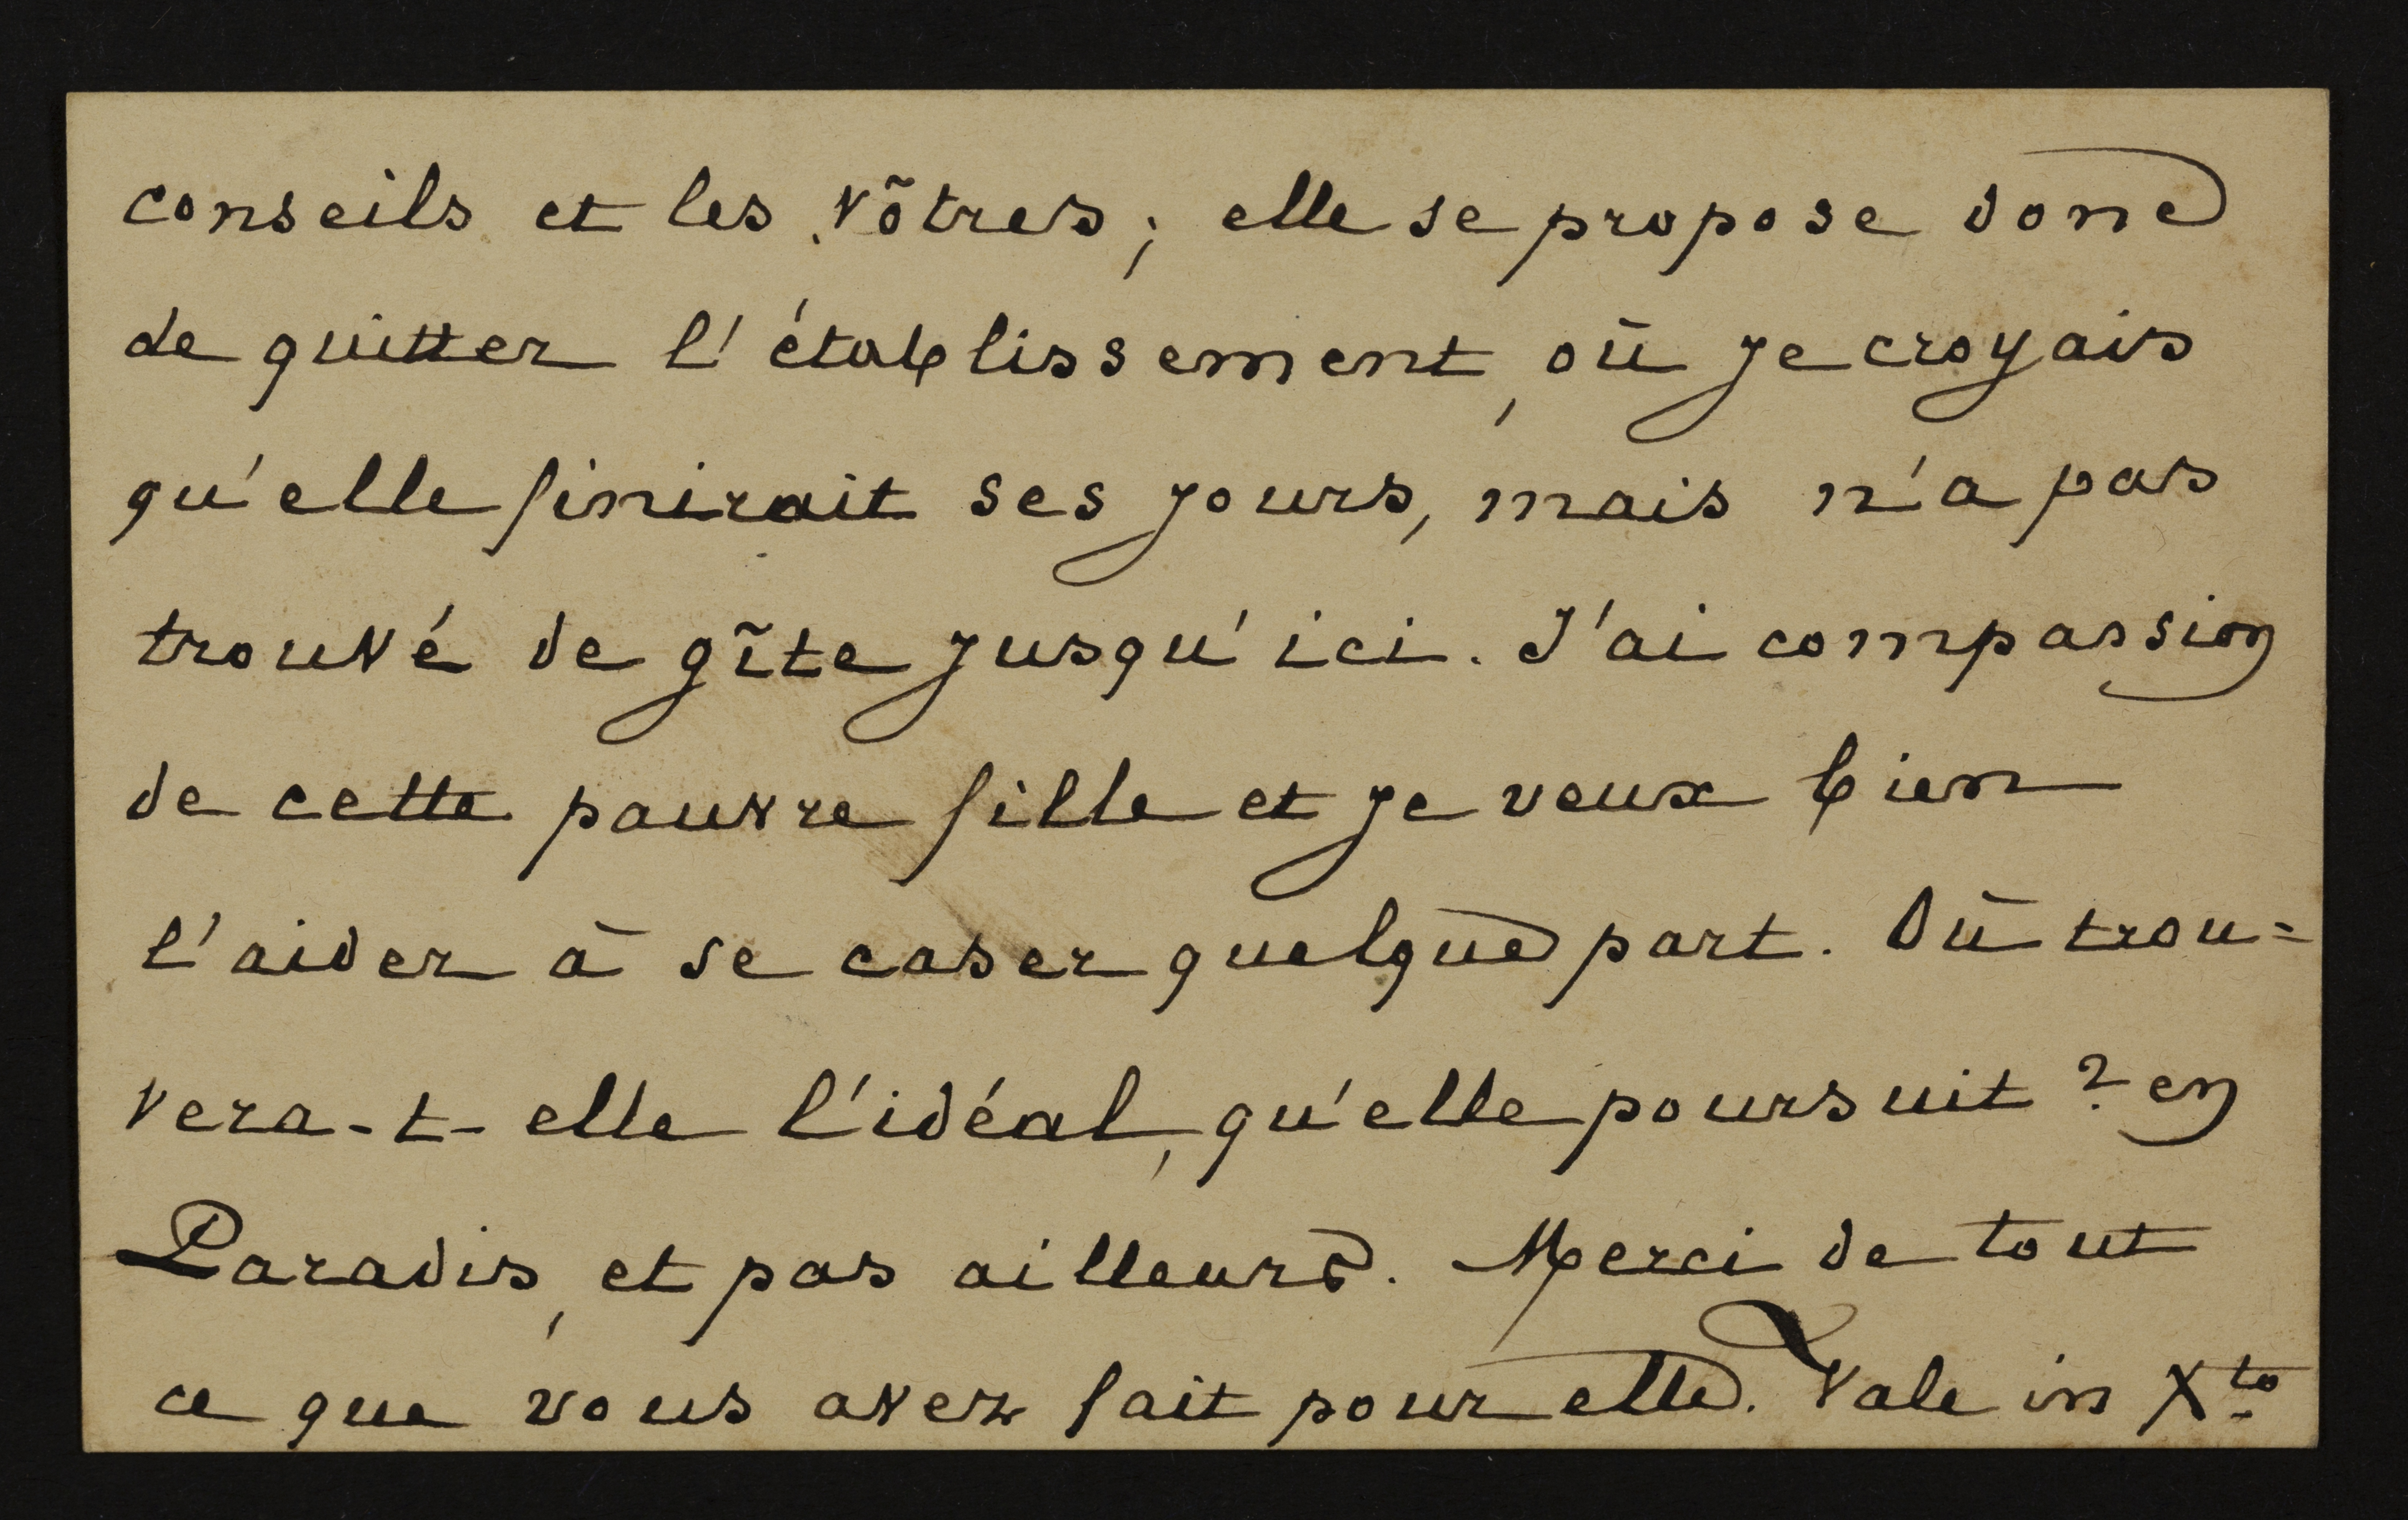 conseils et les vôtres; elle se propose donc
de quitter l'établissement, où je croyais
qu'elle finirait ses jours, mais n'a pas
trouvé de gîte jusqu'ici. J'ai compassion
de cette pauvre fille et je veux bien
l'aider à se caser quelque part. Où trou=
vera-t-elle l'idéal, qu'elle poursuit? en
Paradis, et pas ailleurs. Merci de tout
ce que vous avez fait pour elle. Vale in Xto